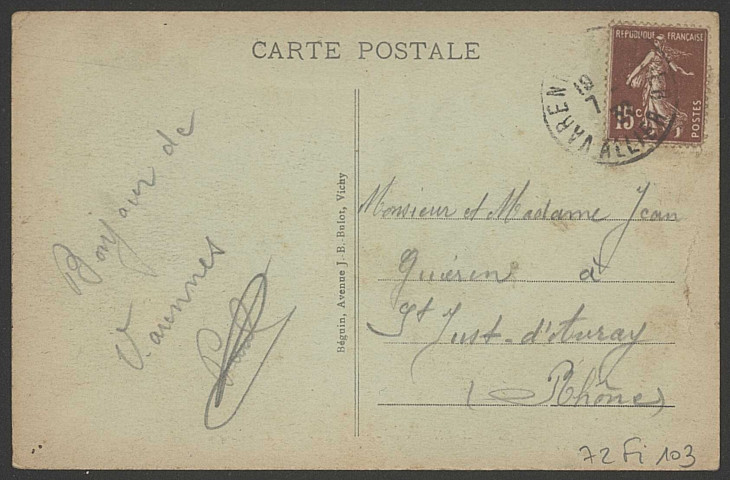 CARTE POSTALE
RÉPUBLIQUE FRANÇAISE
15c
POSTES
VARENN
19
7
ALLIER
Bonjour de
Varennes
Béguin, Avenue J.-B.-Bulot, Vichy
Monsieur et Madame Jean
Guérin à
St Just-d'Avray
(Rhône)
72 Fi 103